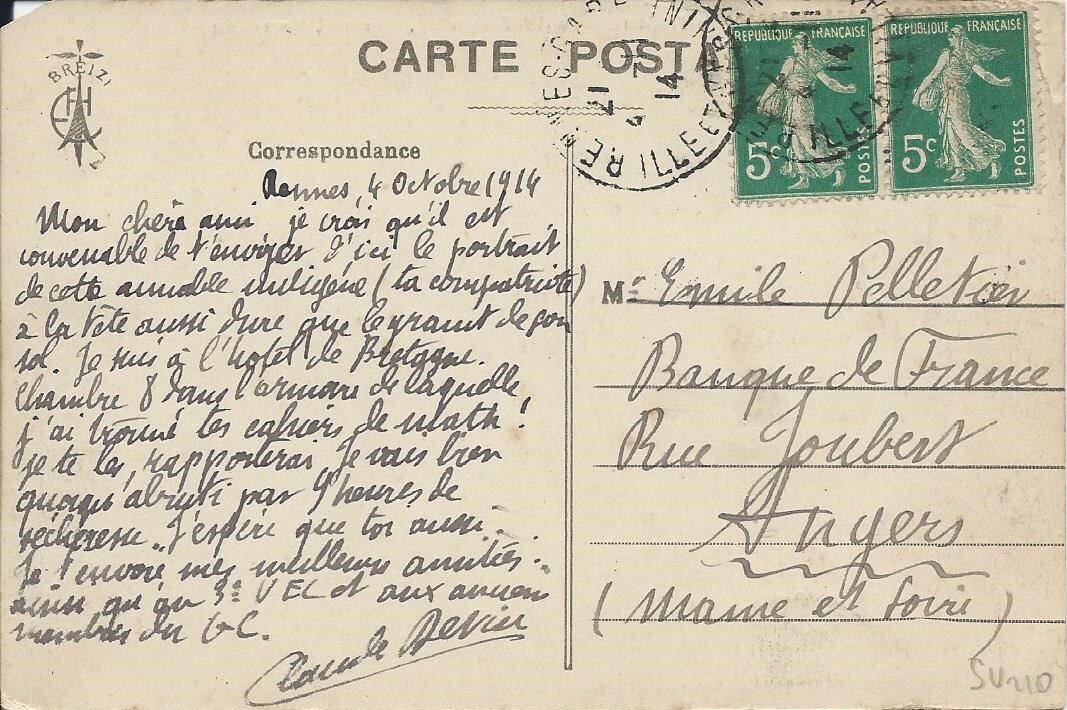 BREIZ
CARTE POSTA
RENNES-GARE
21
4
14
ILLE ET
REPUBLIQUE FRANÇAISE
5c
POSTES
REPUBLIQUE FRANÇAISE
5c
POSTES
Correspondance
Rennes, 4 Octobre 1914
Mon chère ami je crois qu'il est
convenable de t'envoyer d'ici le portrait
de cette aimable indigène (ta compatriote)
à la tête aussi dure que le granit de son
sol. Je suis à l'hotel de Bretagne.
Chambre 8 dans l'armoire de laquelle
j'ai trouvé tes cahiers de math !
je te les rapporterai. Je vais bien
quoiqu'abruti par 9 heures de
sécheresse. J'espère que toi aussi.
Je t'envoie mes meilleurs amitiés
ainsi qu'au 3e VEC et aux anciens
membres du GC.
Claude
Mr Emile Pelletier
Banque de France
Rue Joubert
Angers
(Maine et Loire)
SU 210